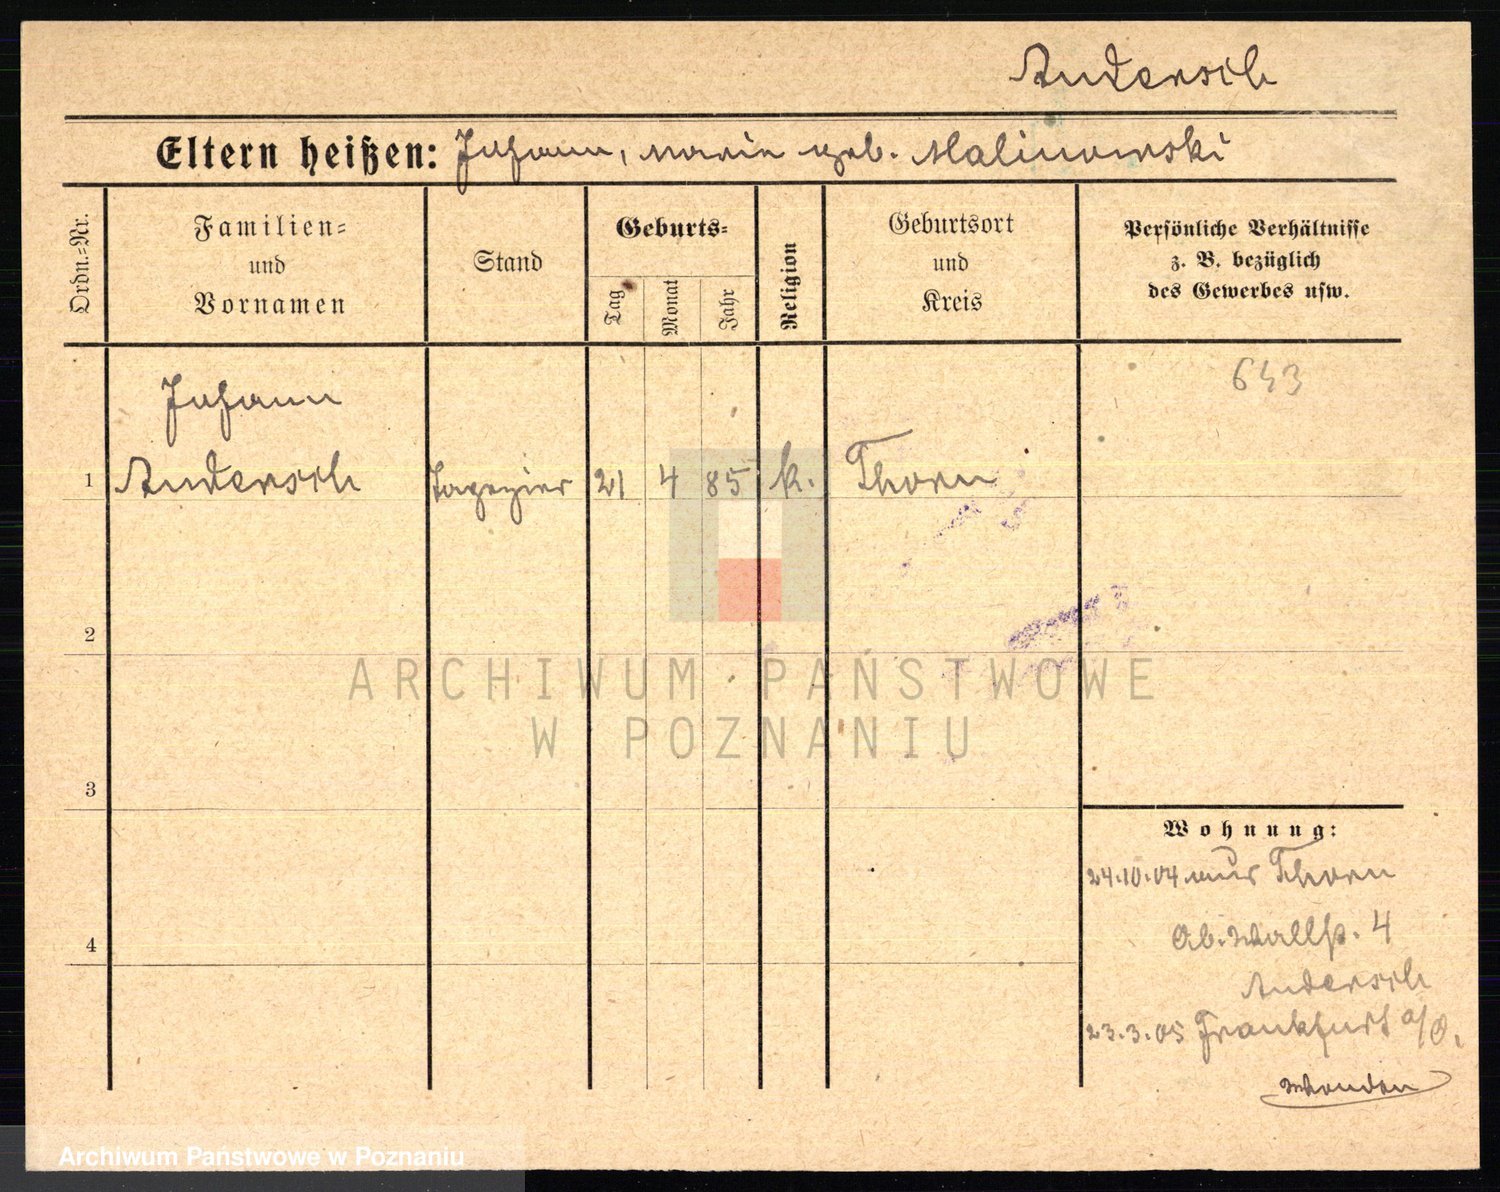 Andersch
Eltern heißen: Johann, Marie geb. Malinowski
Ordn.-Nr.
Familien-
und
Vornamen
Stand
Geburts-
Tag
Monat
Jahr
Religion
Geburtsort
und
Kreis
Persönliche Verhältnisse
z. B. bezüglich
des Gewerbes usw.
643
Johann
1 Andersch Tapezier 21 4 85 k. Thorn
2
ARCHIWUM PAŃSTWOWE
W POZNANIU
3
Wohnung:
24.10.04 aus Thorn
4
Ob. Wallstr. 4
Andersch
23.3.05 Frankfurt a/O.
Archiwum Państwowe w Poznaniu